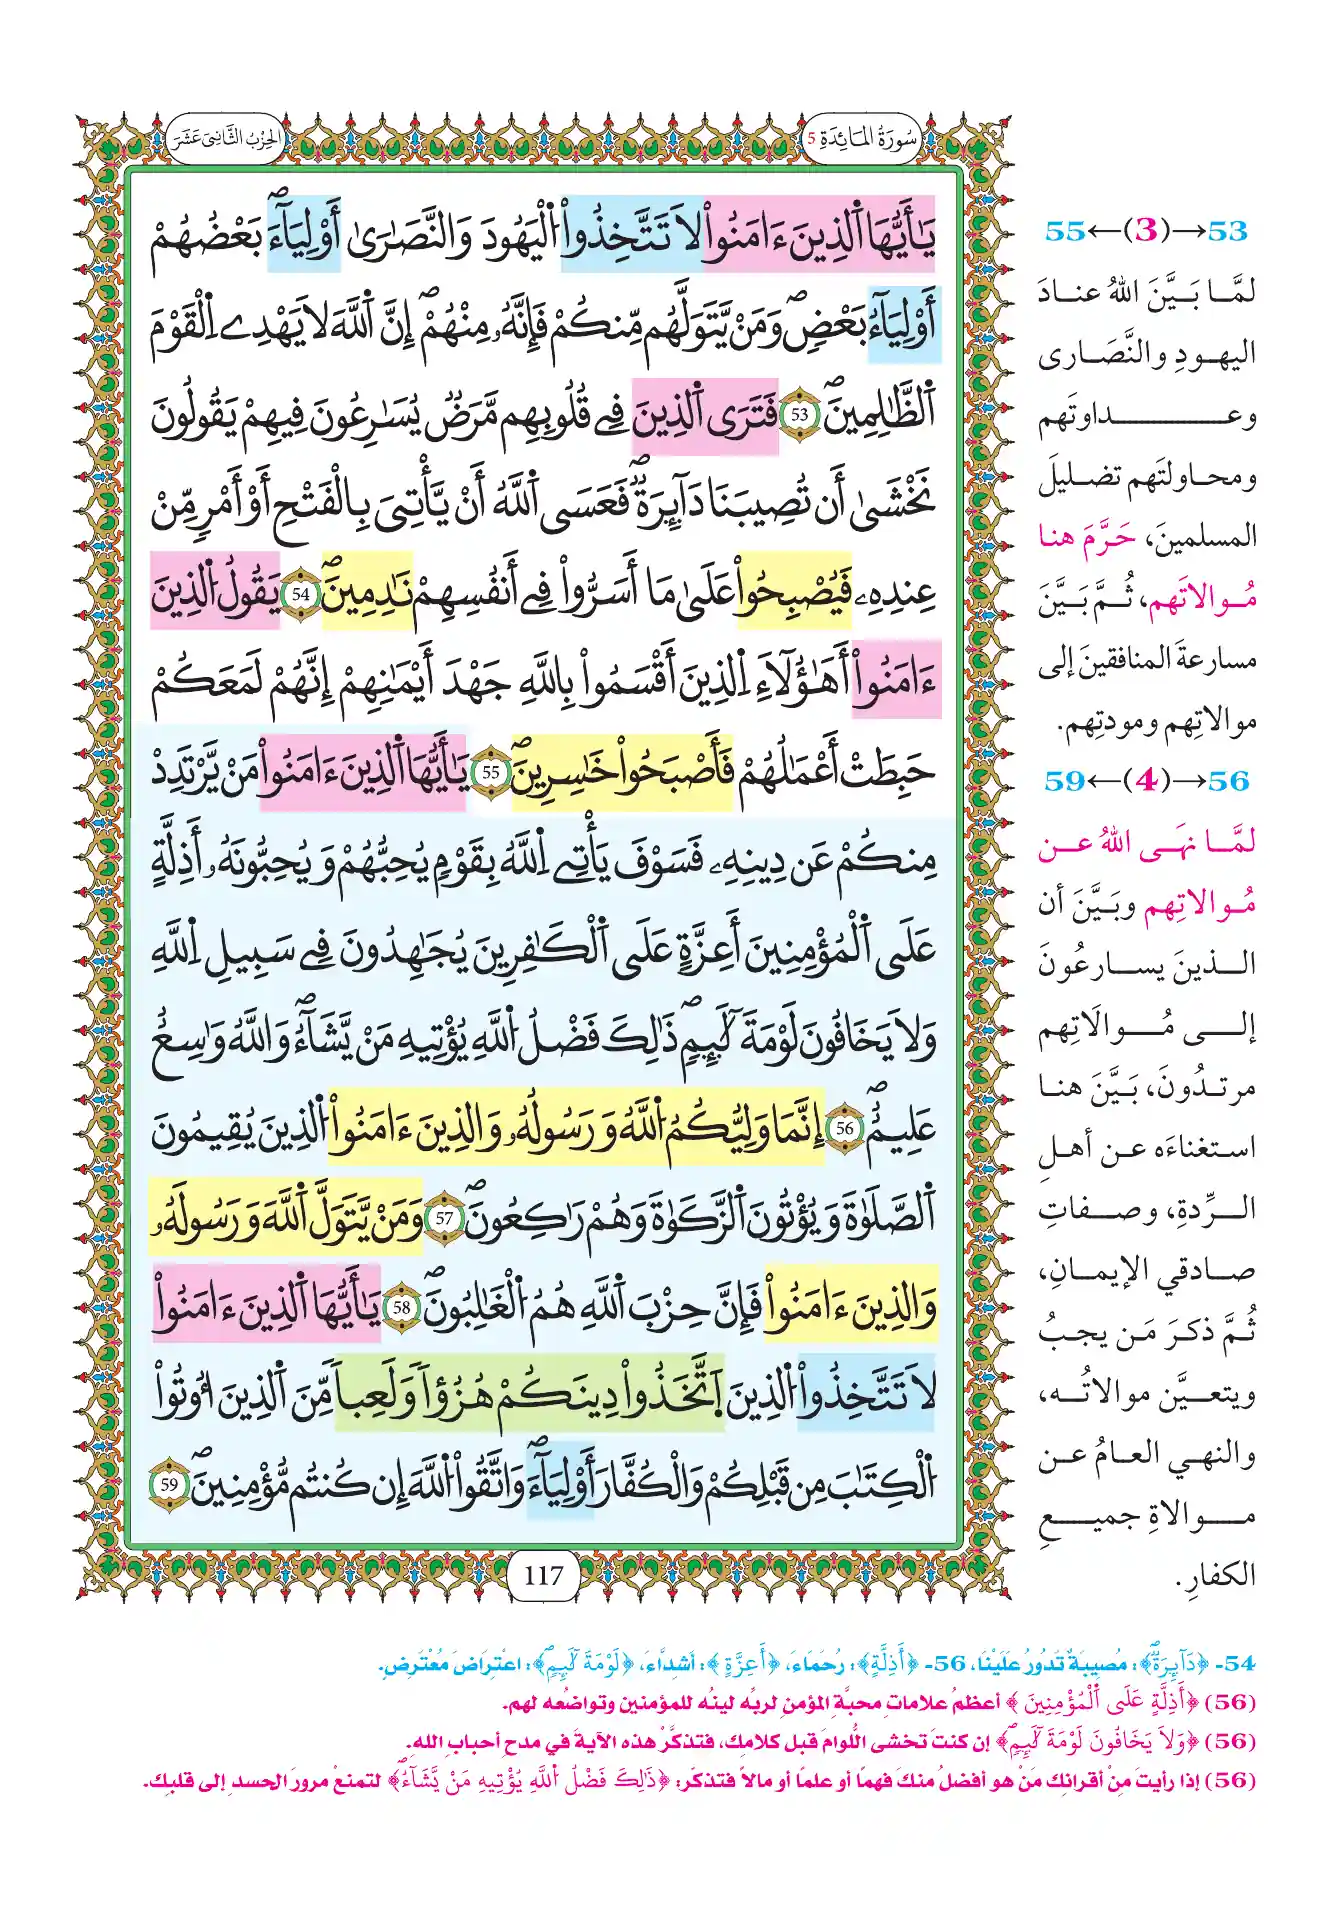 سُورَةُ المَائِدَةِ 5
الحِزْبُ الثَّانِي عَشَرَ
يَٰأَيُّهَا اَ۬لذِينَ ءَامَنُواْ لَا تَتَّخِذُواْ اُ۬لْيَهُودَ وَالنَّصَٰرَىٰ أَوْلِيَآءَۖ بَعْضُهُمْ
أَوْلِيَآءُ بَعْضٖۖ وَمَنْ يَّتَوَلَّهُم مِّنكُمْ فَإِنَّهُۥ مِنْهُمْۖ إِنَّ اَ۬للَّهَ لَا يَهْدِے اِ۬لْقَوْمَ
اَ۬لظَّٰلِمِينَۖ 53 فَتَرَى اَ۬لذِينَ فِے قُلُوبِهِم مَّرَضٞ يُسَٰرِعُونَ فِيهِمْ يَقُولُونَ
نَخْشَىٰ أَن تُصِيبَنَا دَآئِرَةٞۖ فَعَسَى اَ۬للَّهُ أَنْ يَّأْتِيَ بِالْفَتْحِ أَوْ أَمْرٖ مِّنْ
عِندِهِۦ فَيُصْبِحُواْ عَلَىٰ مَا أَسَرُّواْ فِے أَنفُسِهِمْ نَٰدِمِينَۖ 54 يَقُولُ اُ۬لذِينَ
ءَامَنُواْ أَهَٰؤُلَآءِ اِ۬لذِينَ أَقْسَمُواْ بِاللَّهِ جَهْدَ أَيْمَٰنِهِمْ إِنَّهُمْ لَمَعَكُمْ
حَبِطَتْ أَعْمَٰلُهُمْ فَأَصْبَحُواْ خَٰسِرِينَۖ 55 يَٰأَيُّهَا اَ۬لذِينَ ءَامَنُواْ مَنْ يَّرْتَدِدْ
مِنكُمْ عَن دِينِهِۦ فَسَوْفَ يَأْتِے اِ۬للَّهُ بِقَوْمٖ يُحِبُّهُمْ وَيُحِبُّونَهُۥ أَذِلَّةٍ
عَلَى اَ۬لْمُؤْمِنِينَ أَعِزَّةٍ عَلَى اَ۬لْكَٰفِرِينَ يُجَٰهِدُونَ فِے سَبِيلِ اِ۬للَّهِ
وَلَا يَخَافُونَ لَوْمَةَ لَآئِمٖۖ ذَٰلِكَ فَضْلُ اُ۬للَّهِ يُؤْتِيهِ مَنْ يَّشَآءُۖ وَاللَّهُ وَٰسِعٌ
عَلِيمٌۖ 56 إِنَّمَا وَلِيُّكُمُ اُ۬للَّهُ وَرَسُولُهُۥ وَالذِينَ ءَامَنُواْ اُ۬لذِينَ يُقِيمُونَ
اَ۬لصَّلَوٰةَ وَيُؤْتُونَ اَ۬لزَّكَوٰةَ وَهُمْ رَٰكِعُونَۖ 57 وَمَنْ يَّتَوَلَّ اَ۬للَّهَ وَرَسُولَهُۥ
وَالذِينَ ءَامَنُواْ فَإِنَّ حِزْبَ اَ۬للَّهِ هُمُ اُ۬لْغَٰلِبُونَۖ 58 يَٰأَيُّهَا اَ۬لذِينَ ءَامَنُواْ
لَا تَتَّخِذُواْ اُ۬لذِينَ اَ۪تَّخَذُواْ دِينَكُمْ هُزُؤاٗ وَلَعِباٗ مِّنَ اَ۬لذِينَ أُوتُواْ
اُ۬لْكِتَٰبَ مِن قَبْلِكُمْ وَالْكُفَّارَ أَوْلِيَآءَۖ وَاتَّقُواْ اُ۬للَّهَ إِن كُنتُم مُّؤْمِنِينَۖ 59
117
53→(3)←55
لمَّا بَيَّنَ اللهُ عنادَ
اليهودِ والنَّصَارى
وعداوتَهم
ومحاولتَهم تضليلَ
المسلمينَ، حَرَّمَ هنا
مُوالاتَهم، ثُمَّ بَيَّنَ
مسارعةَ المنافقينَ إلى
موالاتِهم ومودتِهم.
56→(4)←59
لمَّا نهَى اللهُ عن
مُوالاتِهم وبَيَّنَ أن
الذينَ يسارعُونَ
إلى مُوالَاتِهم
مرتدُونَ، بَيَّنَ هنا
استغناءَه عن أهلِ
الرِّدةِ، وصفاتِ
صادقي الإيمانِ،
ثُمَّ ذكرَ مَن يجبُ
ويتعيَّن موالاتُه،
والنهي العامُ عن
موالاةِ جميعِ
الكفارِ.
54- ﴿دَآئِرَةٞۖ﴾: مُصِيبَةٌ تَدُورُ عَلَيْنَا، 56- ﴿أَذِلَّةٍ﴾: رُحَمَاءَ، ﴿أَعِزَّةٍ﴾: أشِدَّاءَ، ﴿لَوْمَةَ لَآئِمٖۖ﴾: اعْتِرَاضَ مُعْتَرِضٍ.
(56) ﴿أَذِلَّةٍ عَلَى اَ۬لْمُؤْمِنِينَ﴾ أعظمُ علاماتِ محبَّةِ المؤمنِ لربِّه لينُه للمؤمنين وتواضُعه لهم.
(56) ﴿وَلَا يَخَافُونَ لَوْمَةَ لَآئِمٖۖ﴾ إن كنتَ تخشى اللُّوامَ قبل كلامِك، فتذكَّرْ هذه الآيةَ في مدحِ أحبابِ اللهِ.
(56) إذا رأيتَ مِنْ أقرانِك مَنْ هو أفضلُ منكَ فهمًا أو علمًا أو مالًا فتذكَّر: ﴿ذَٰلِكَ فَضْلُ اُ۬للَّهِ يُؤْتِيهِ مَنْ يَّشَآءُۖ﴾ لتمنعْ مرورَ الحسدِ إلى قلبِك.